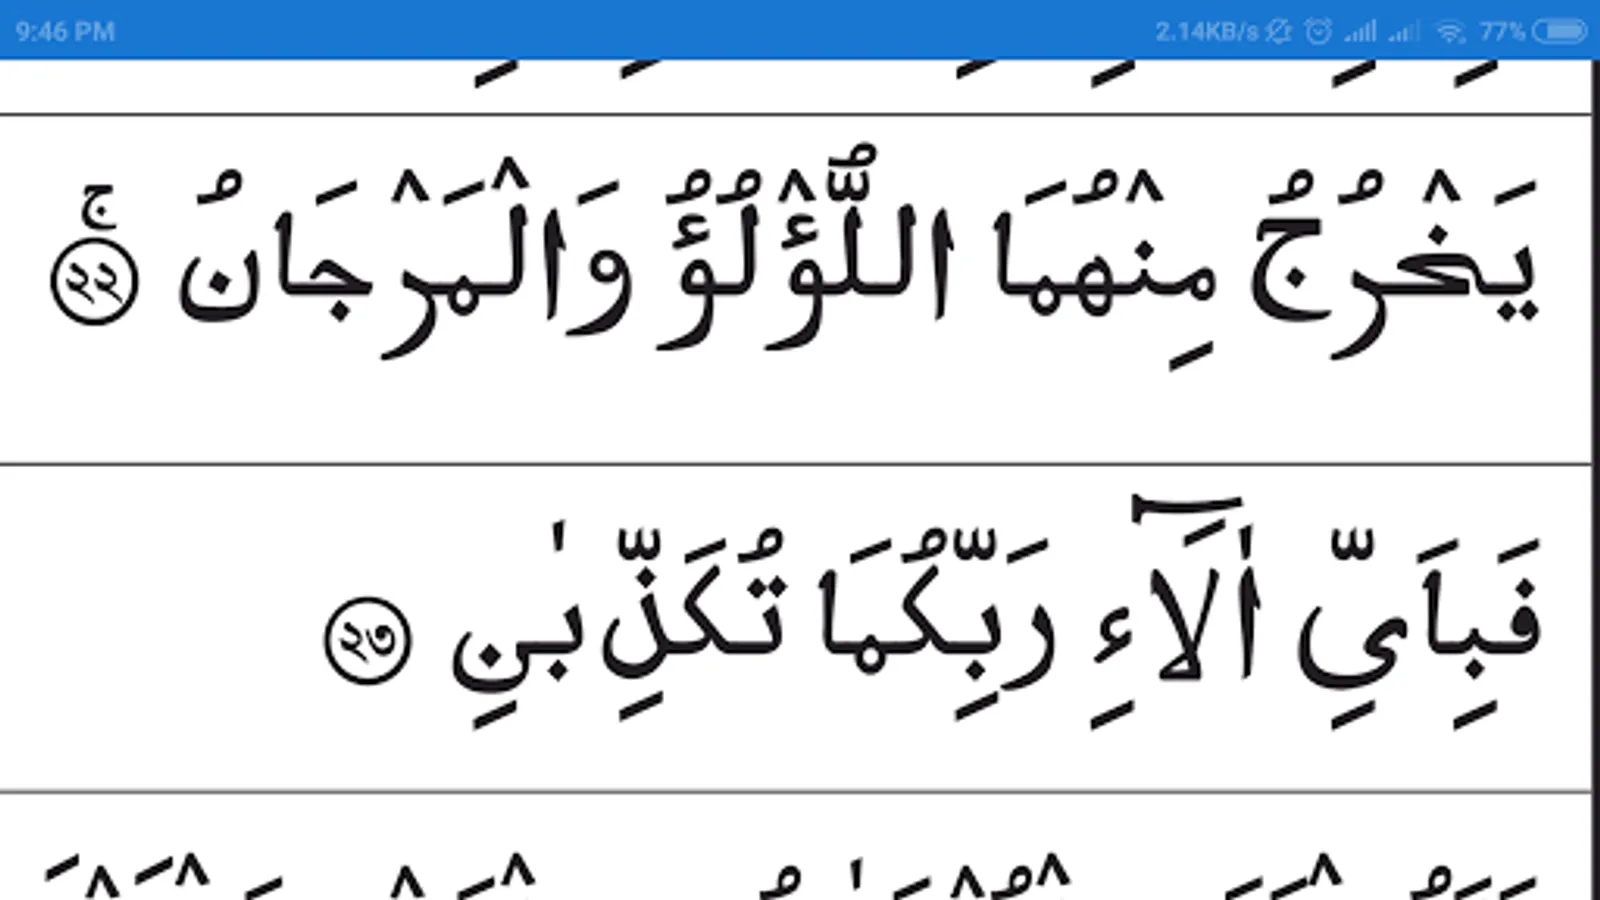 9:46 PM 2.14KB/s 77%
يَخۡرُجُ مِنۡهُمَا اللُّؤۡلُؤُ وَالۡمَرۡجَانُ ۚ ﴿২২﴾
فَبِاَىِّ اٰلَآءِ رَبِّكُمَا تُكَذِّبٰنِ ﴿২৩﴾